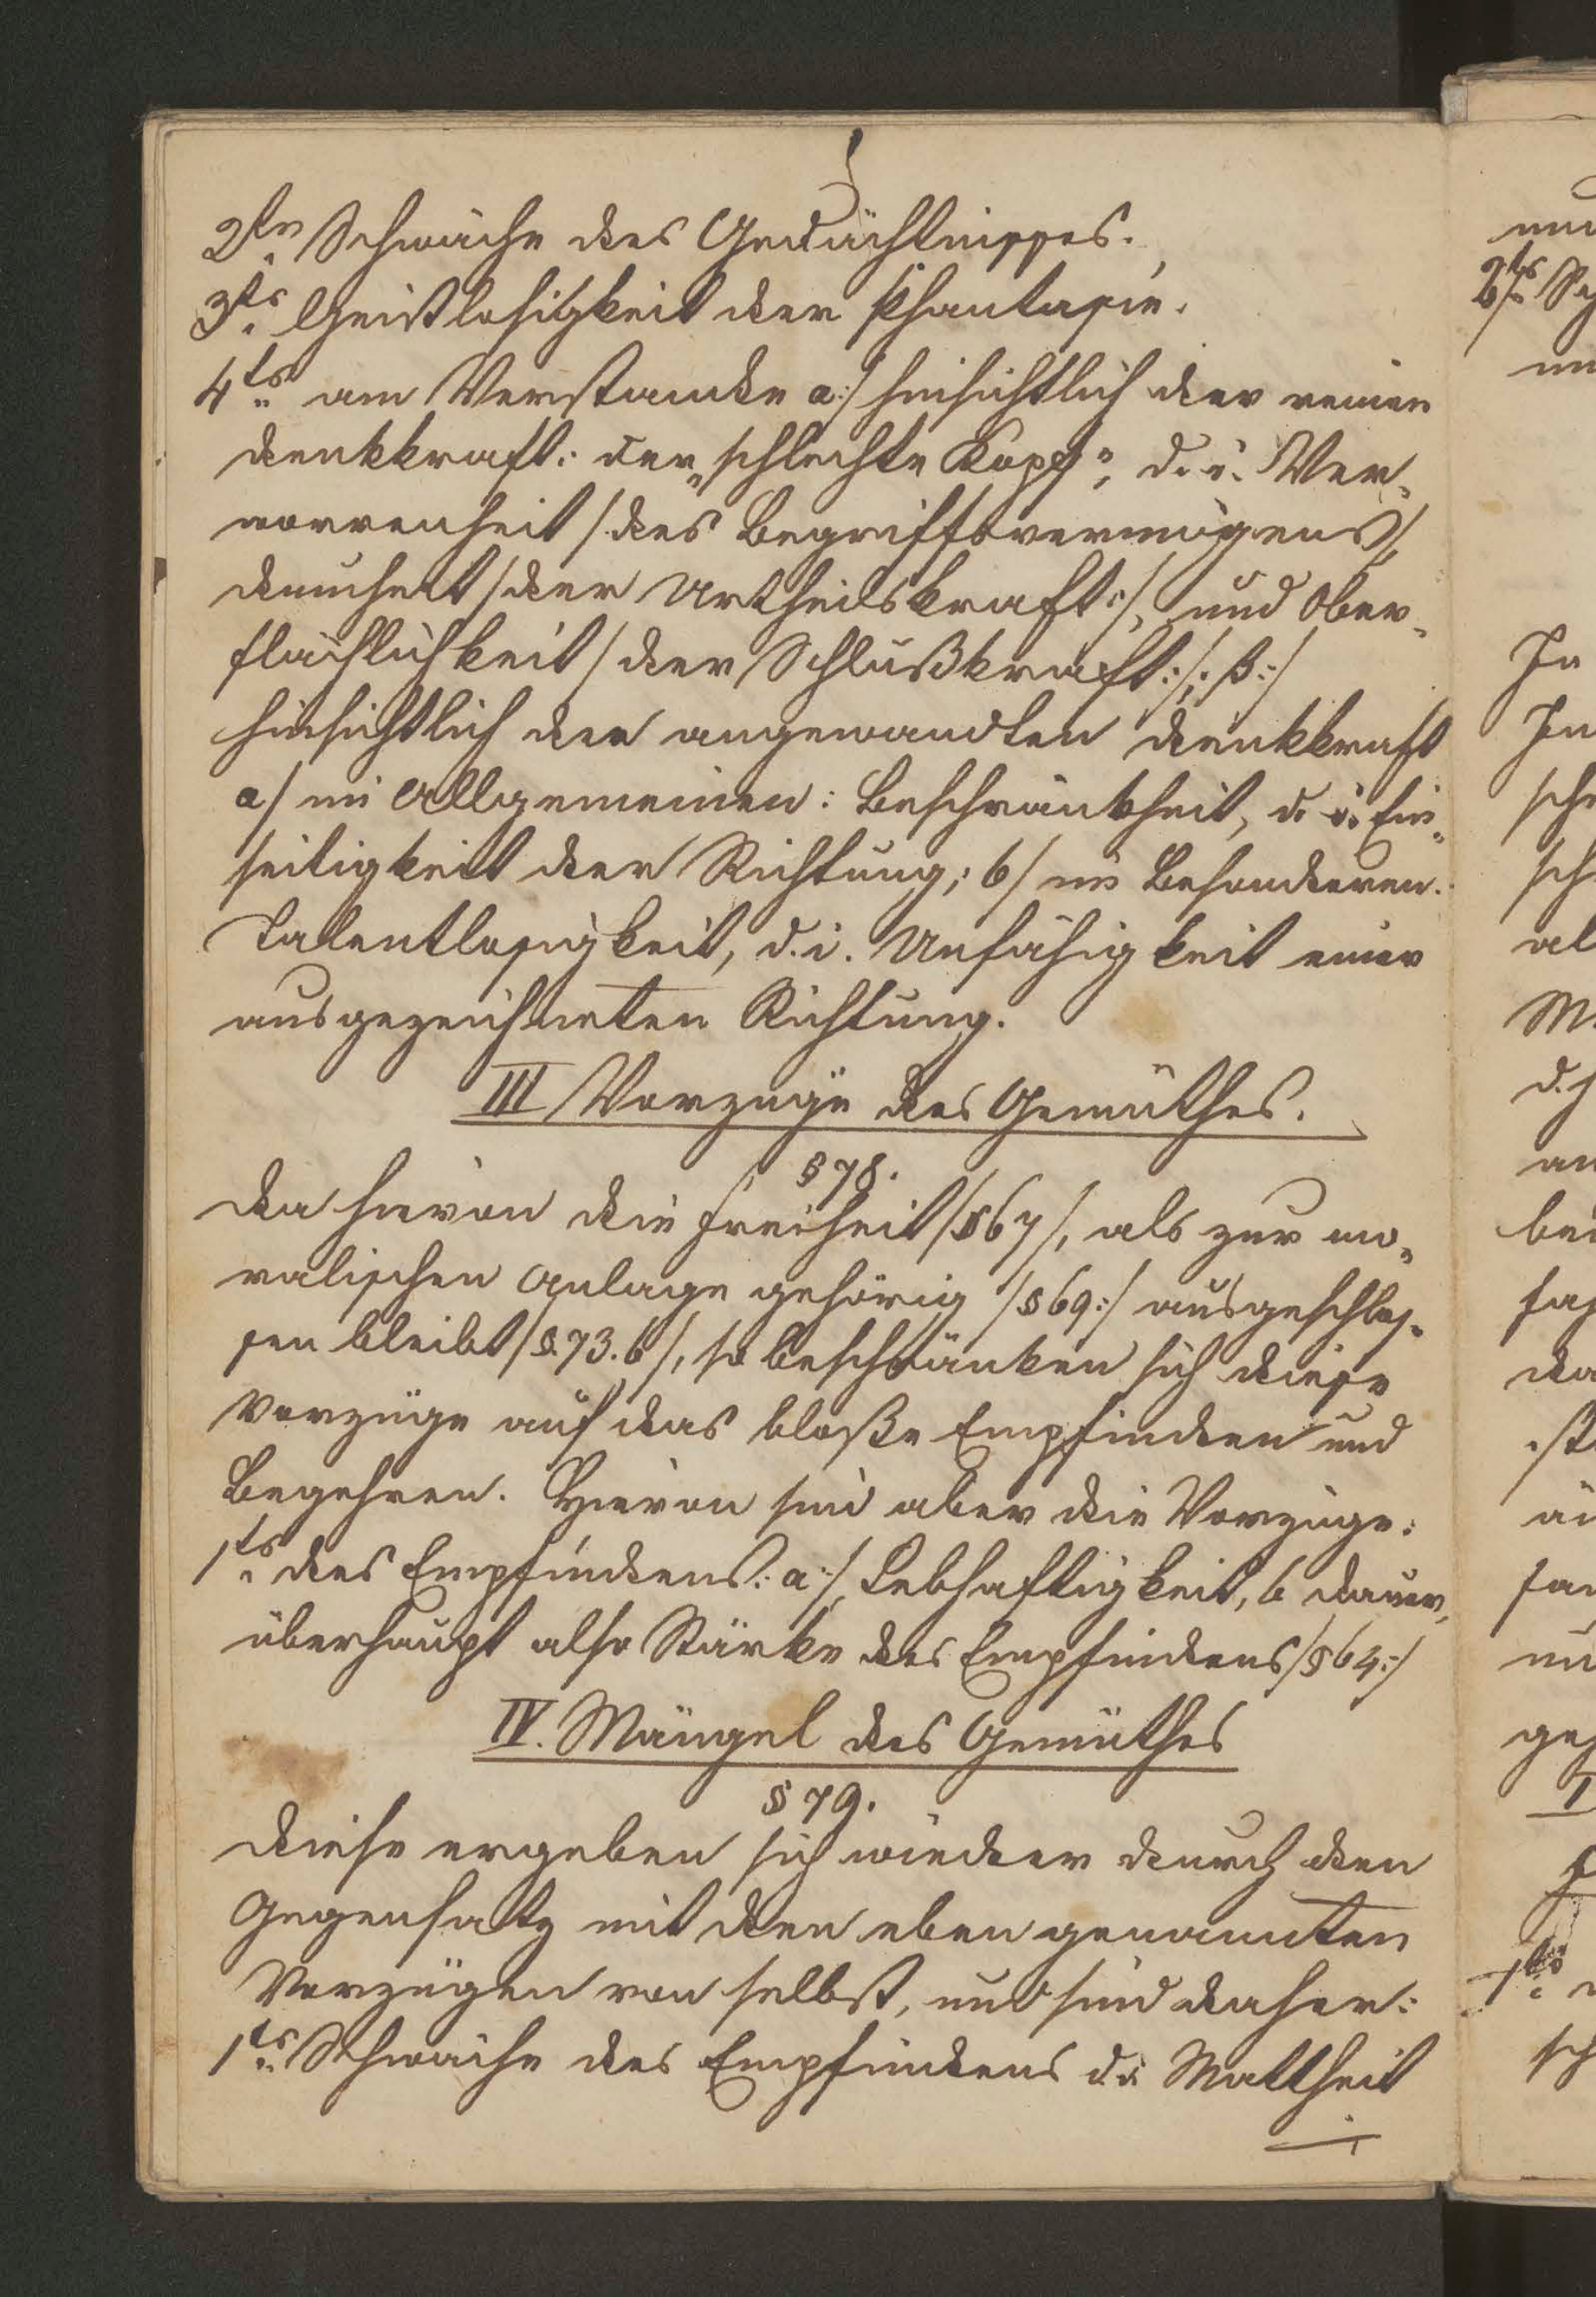 2tns Schwäche des Gedächtnisses.
3ts Geistlosigkeit der Phantasie.
4ts am Verstande a:/ hinsichtlich der reinen
Denkkraft: der „schlechte Kopf“, d. i. Ver-
worrenheit /: des Begriffsvermögens /,
Dummheit / der Urtheilskraft :/, und Ober-
flächlichkeit / der Schlußkraft :/; β:/
hinsichtlich der angewandten Denkkraft
a/ im Allgemeinen: Beschränktheit, d. i. Ein-
seitigkeit der Richtung; b/ im Besonderen:
Talentlosigkeit, d. i. Unfähigkeit einer
ausgezeichneten Richtung.
III Vorzüge des Gemüthes.
§ 78.
Da hievon die Freiheit /§ 67/, als zur mo-
ralischen Anlage gehörig /§ 69:/ ausgeschlos-
sen bleibt /§. 73. b/, so beschränken sich diese
Vorzüge auf das bloße Empfinden und
Begehren. Hievon sind aber die Vorzüge:
1ts des Empfindens: a:/ Lebhaftigkeit, b Dauer,
überhaupt also Stärke des Empfindens /§ 64:/
IV. Mängel des Gemüthes
§ 79.
Diese ergeben sich wieder durch den
Gegensatz mit den eben genannten
Vorzügen von selbst, und sind daher:
1ts Schwäche des Empfindens d. i. Mattheit